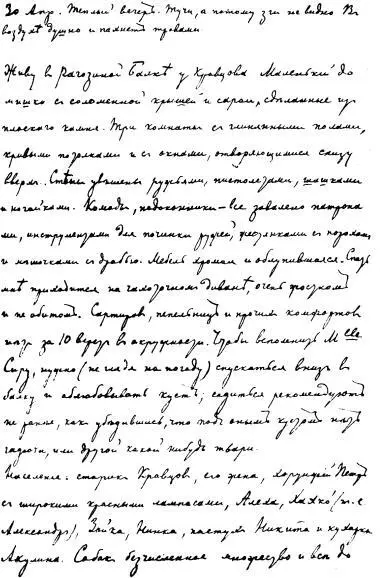 30 Апр. Теплый вечеръ. Тучи, а потому зги не видно. Въ
воздухѣ душно и пахнетъ травами
Живу въ Рагозиной Балкѣ у Кравцова. Маленькій до-
мишко съ соломенной крышей и сараи, сдѣланные изъ
плоскаго камня. Три комнаты съ глиняными полами,
кривыми потолками и съ окнами, отворяющимися снизу
вверхъ. Стѣны увѣшены ружьями, пистолетами, шашками
и ногайками. Комоды, подоконники — все завалено патрона-
ми, инструментами для починки ружей, жестянками съ порохомъ
и мѣшочками съ дробью. Мебель хромая и облупившаяся. Спать
мнѣ приходится на чахоточномъ диванѣ, очень жесткомъ
и не обитомъ. Сортировъ, пепельницъ и прочихъ комфортовъ
нѣтъ за 10 верстъ въ окружности. Чтобы вспомнить Mlle
Сиру, нужно (не глядя на погоду) спускаться внизъ въ
балку и облюбовывать кустъ; садиться рекомендуютъ
не ранѣе, какъ убѣдившись, что подъ онымъ кустомъ нѣтъ
гадюки, или другой какой нибудь твари.
Населеніе: старикъ Кравцовъ, его жена, хорунжій Петръ
съ широкими красными лампасами, Алеха, Хахко (т. е.
Александръ), Зойка, Нинка, пастухъ Никита и кухарка
Акулина. Собакъ безчисленное множество и всѣ до